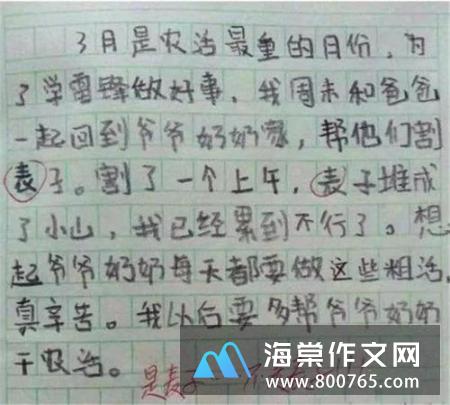 3月是农活最重的月份，为
了学雷锋做好事，我周末和爸爸
一起回到爷爷奶奶家，帮他们割
表子。割了一个上午，表子堆成
了小山，我已经累到不行了。想
起爷爷奶奶每天都要做这些粗活，
真辛苦。我以后要多帮爷爷奶奶
干农活。
海棠作文网
www.800765.com